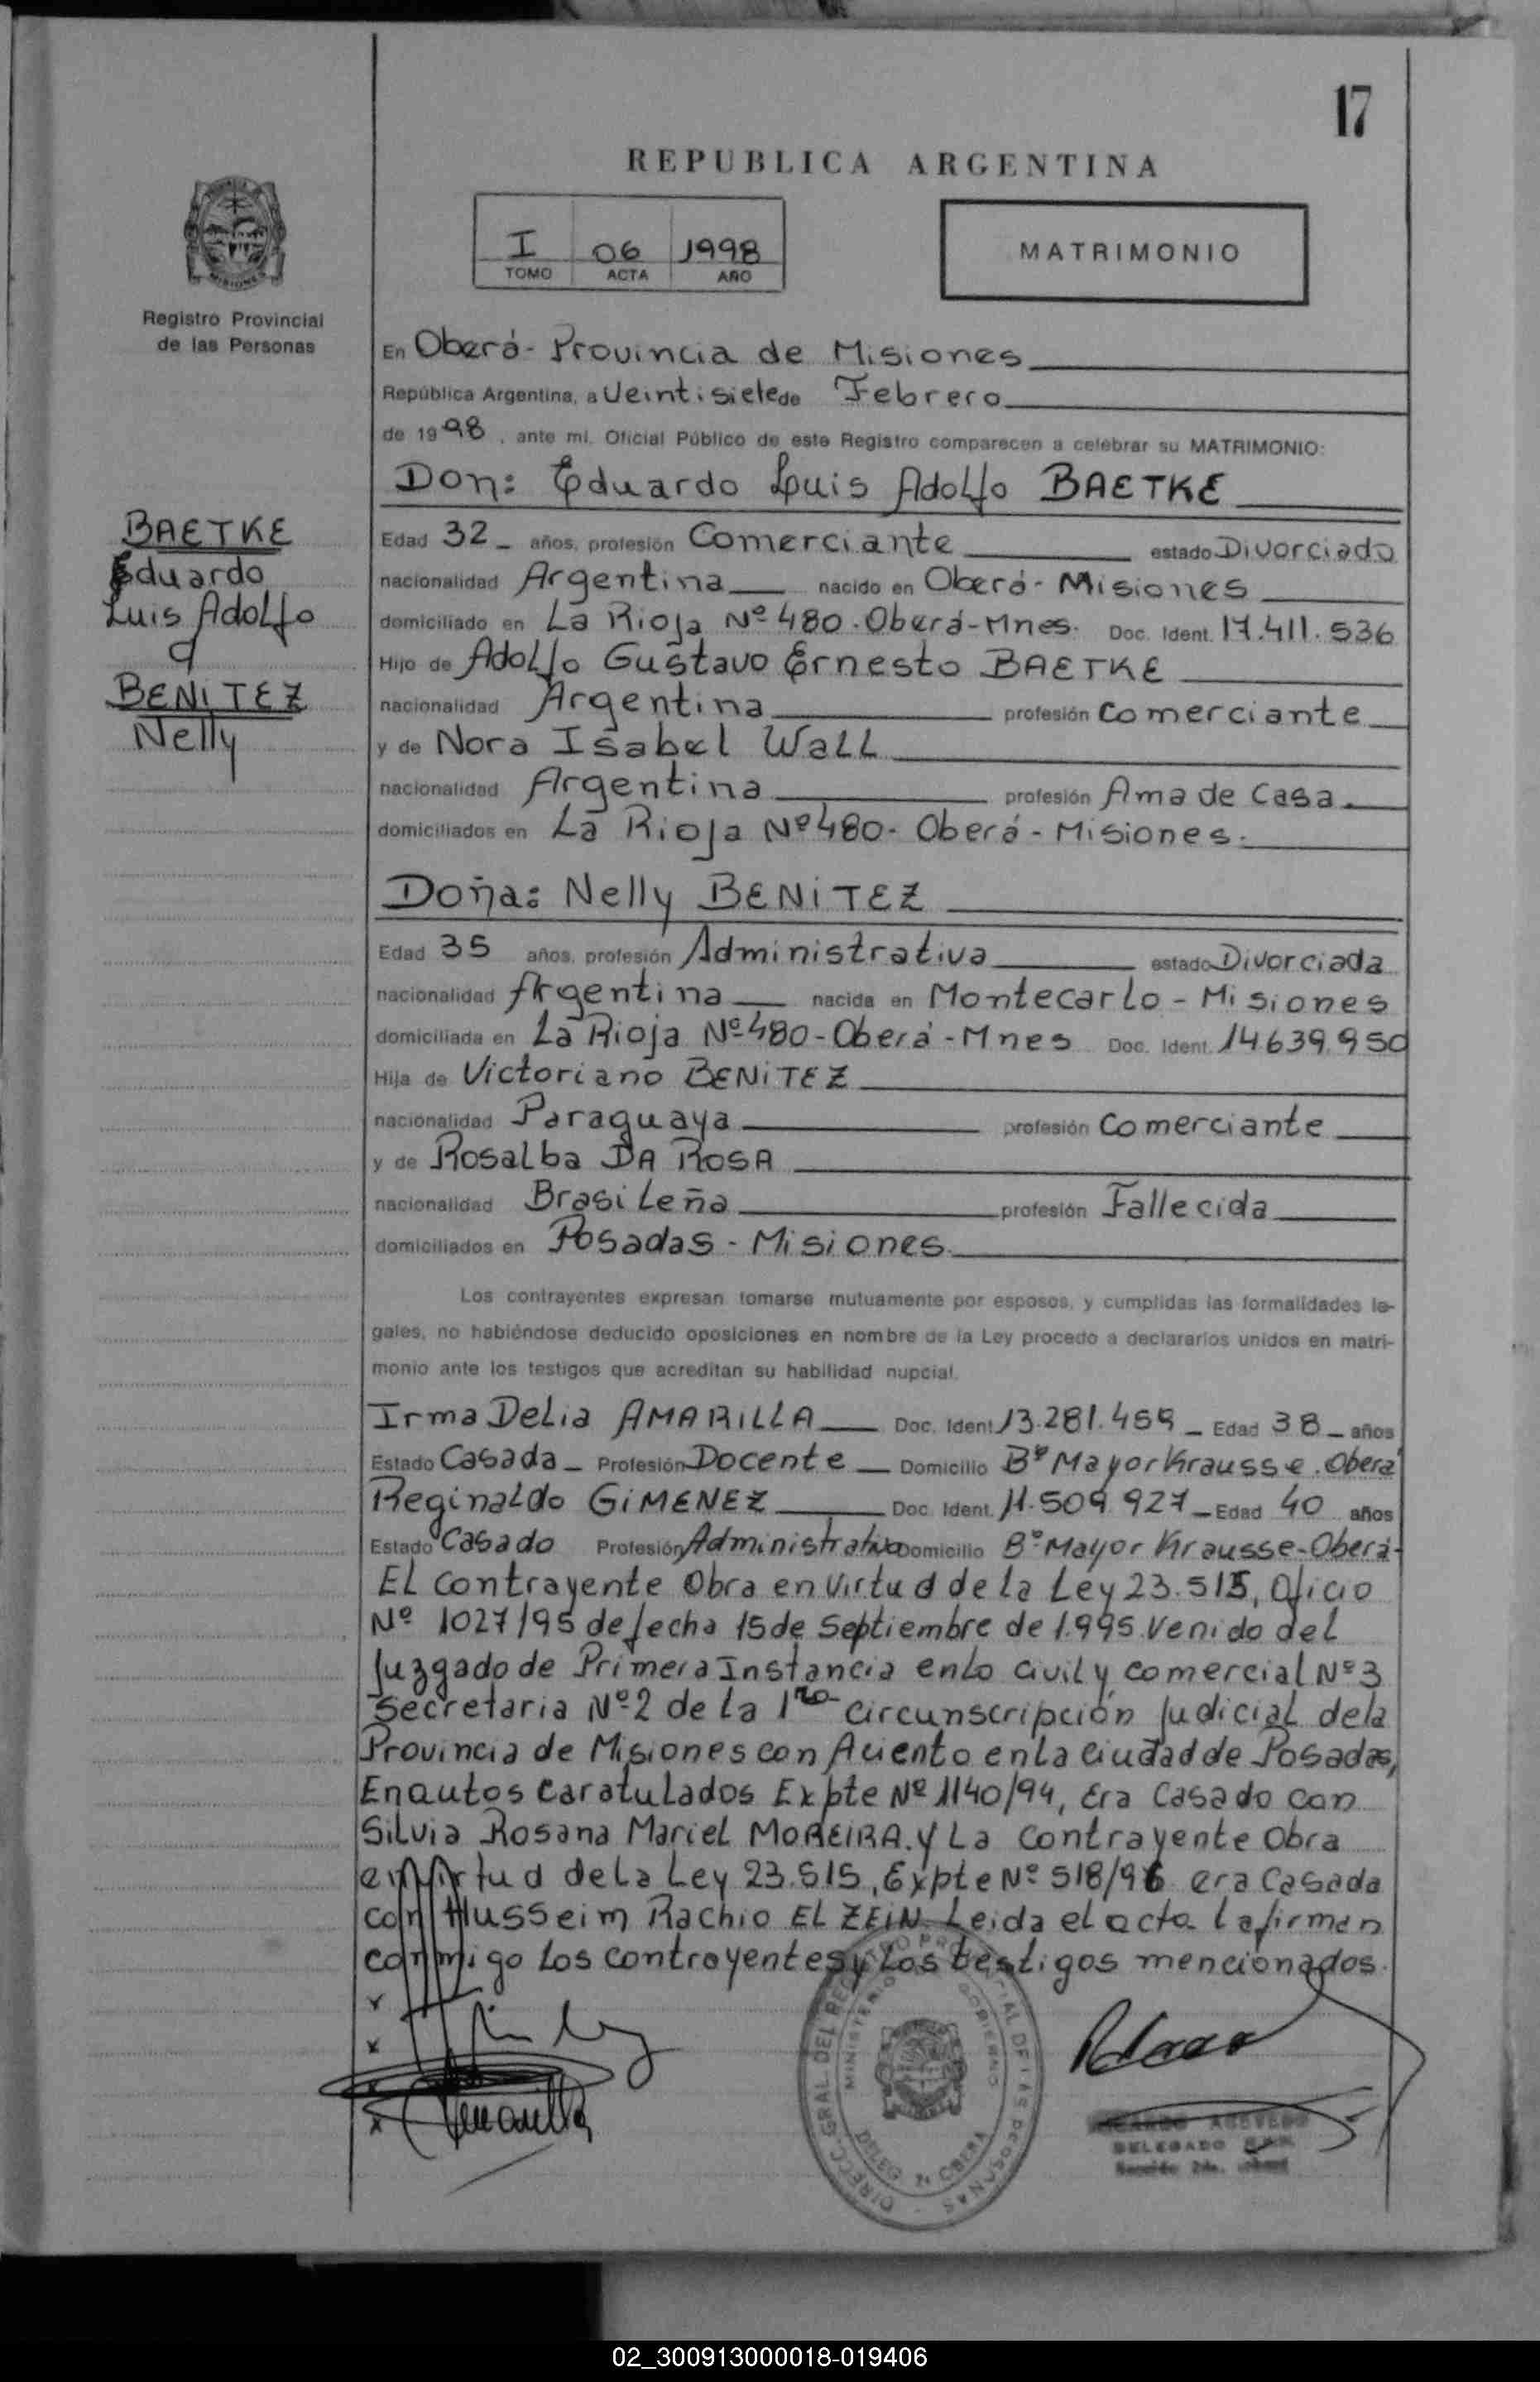 17
REPUBLICA ARGENTINA
I 06 1998
TOMO ACTA AÑO
MATRIMONIO
Registro Provincial
de las Personas
En Oberá - Provincia de Misiones
República Argentina, a Veintisiete de Febrero
de 1998, ante mi, Oficial Público de este Registro comparecen a celebrar su MATRIMONIO:
Don: Eduardo Luis Adolfo BAETKE
BAETKE
Eduardo
Luis Adolfo
q
BENITEZ
Nelly
Edad 32 _ años, profesión Comerciante estado Divorciado
nacionalidad Argentina nacido en Oberá - Misiones
domiciliado en La Rioja Nº 480 - Oberá - Mnes. Doc. Ident. 17.411.536
Hijo de Adolfo Gustavo Ernesto BAETKE
nacionalidad Argentina profesión Comerciante
y de Nora Isabel Wall
nacionalidad Argentina profesión Ama de Casa
domiciliados en La Rioja Nº 480 - Oberá - Misiones.
Doña: Nelly BENITEZ
Edad 35 años, profesión Administrativa estado Divorciada
nacionalidad Argentina nacida en Montecarlo - Misiones
domiciliada en La Rioja Nº 480 - Oberá - Mnes Doc. Ident. 14639.950
Hija de Victoriano BENITEZ
nacionalidad Paraguaya profesión Comerciante
y de Rosalba DA ROSA
nacionalidad Brasileña profesión Fallecida
domiciliados en Posadas - Misiones.
Los contrayentes expresan tomarse mutuamente por esposos, y cumplidas las formalidades le-
gales, no habiéndose deducido oposiciones en nombre de la Ley procedo a declararlos unidos en matri-
monio ante los testigos que acreditan su habilidad nupcial.
Irma Delia AMARILLA Doc. Ident. 13.281.459 _ Edad 38 _ años
Estado Casada _ Profesión Docente _ Domicilio Bº Mayor Krausse. Oberá
Reginaldo GIMENEZ Doc. Ident. 11.509.927 _ Edad 40 años
Estado Casado Profesión Administrativo Domicilio Bº Mayor Krausse - Oberá -
El contrayente Obra en virtud de la Ley 23.515, Oficio
Nº 1027/95 de fecha 15 de Septiembre de 1.995 Venido del
Juzgado de Primera Instancia en lo civil y comercial Nº 3
Secretaria Nº 2 de la 1ra circunscripción Judicial de la
Provincia de Misiones con Aciento en la ciudad de Posadas,
En autos caratulados Expte Nº 1140/94, Era Casado con
Silvia Rosana Mariel MOREIRA. y La contrayente Obra
en virtud de la Ley 23.515, Expte Nº 518/96 era Casada
con Husseim Rachio EL ZEIN. Leida el acta la firman
conmigo los contrayentes y los testigos mencionados.
DIRECC. GRAL. DEL REGISTRO PROVINCIAL DE LAS PERSONAS
MINISTERIO DE GOBIERNO
DELEG. OBERA
ACEVEDO
DELEGADO
02_300913000018-019406